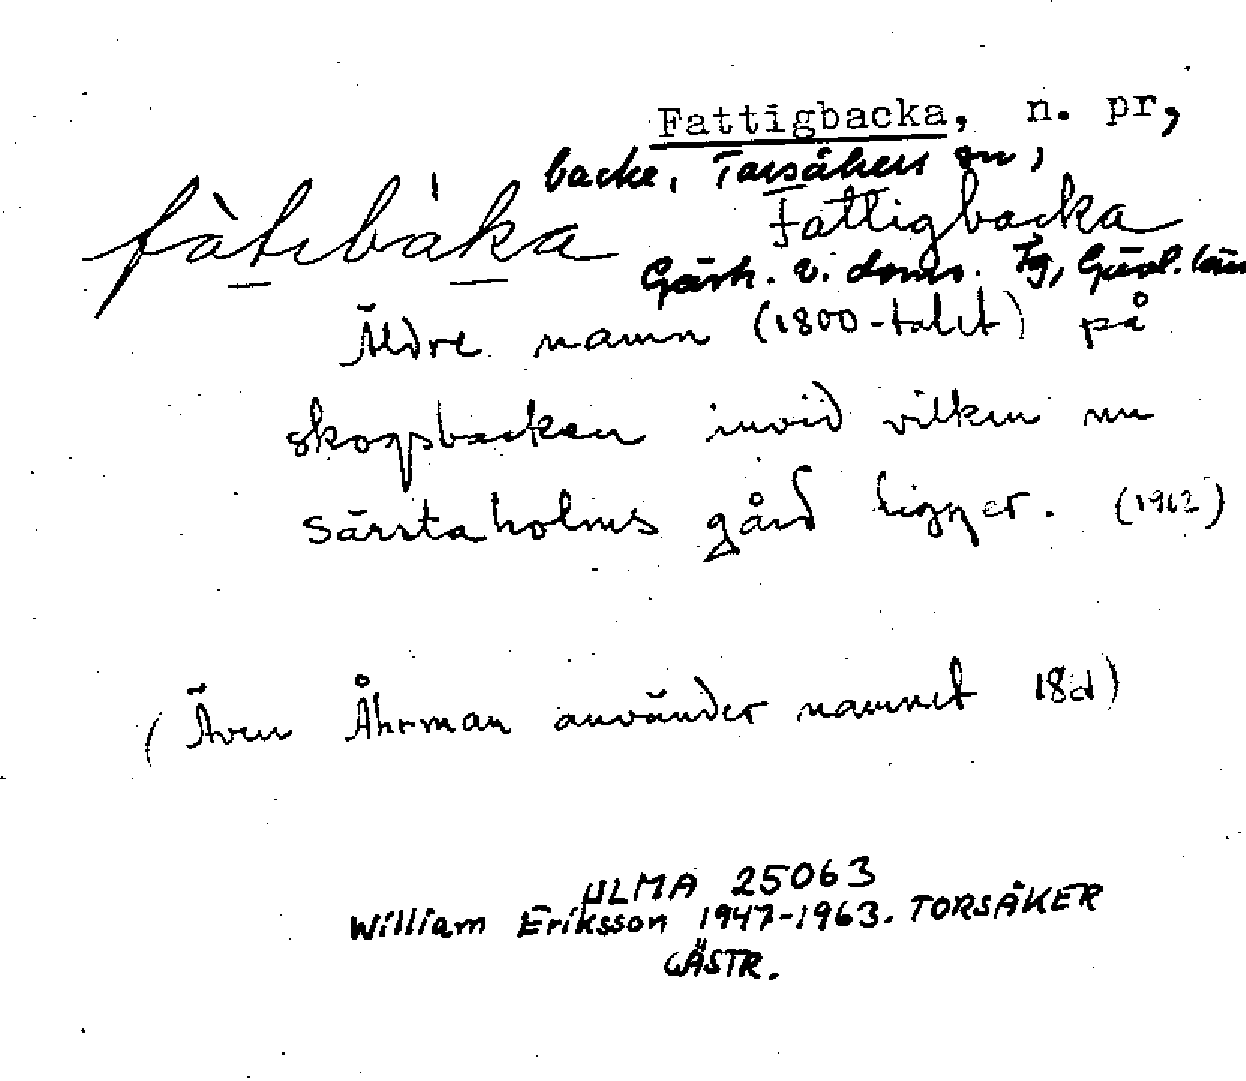 Fattigbacka, n. pr,
backe, Torsåkers sn,
fàtıbáka Fattigbacka
Gästr. v. doms. Tg, Gävl. län
Äldre namn (1800-talet) på
skogsbacken invid vilken nu
Särstaholms gård ligger. (1962)
(Även Åhrman använder namnet 1861)
ULMA 25063
William Eriksson 1947-1963. TORSÅKER
GÄSTR.